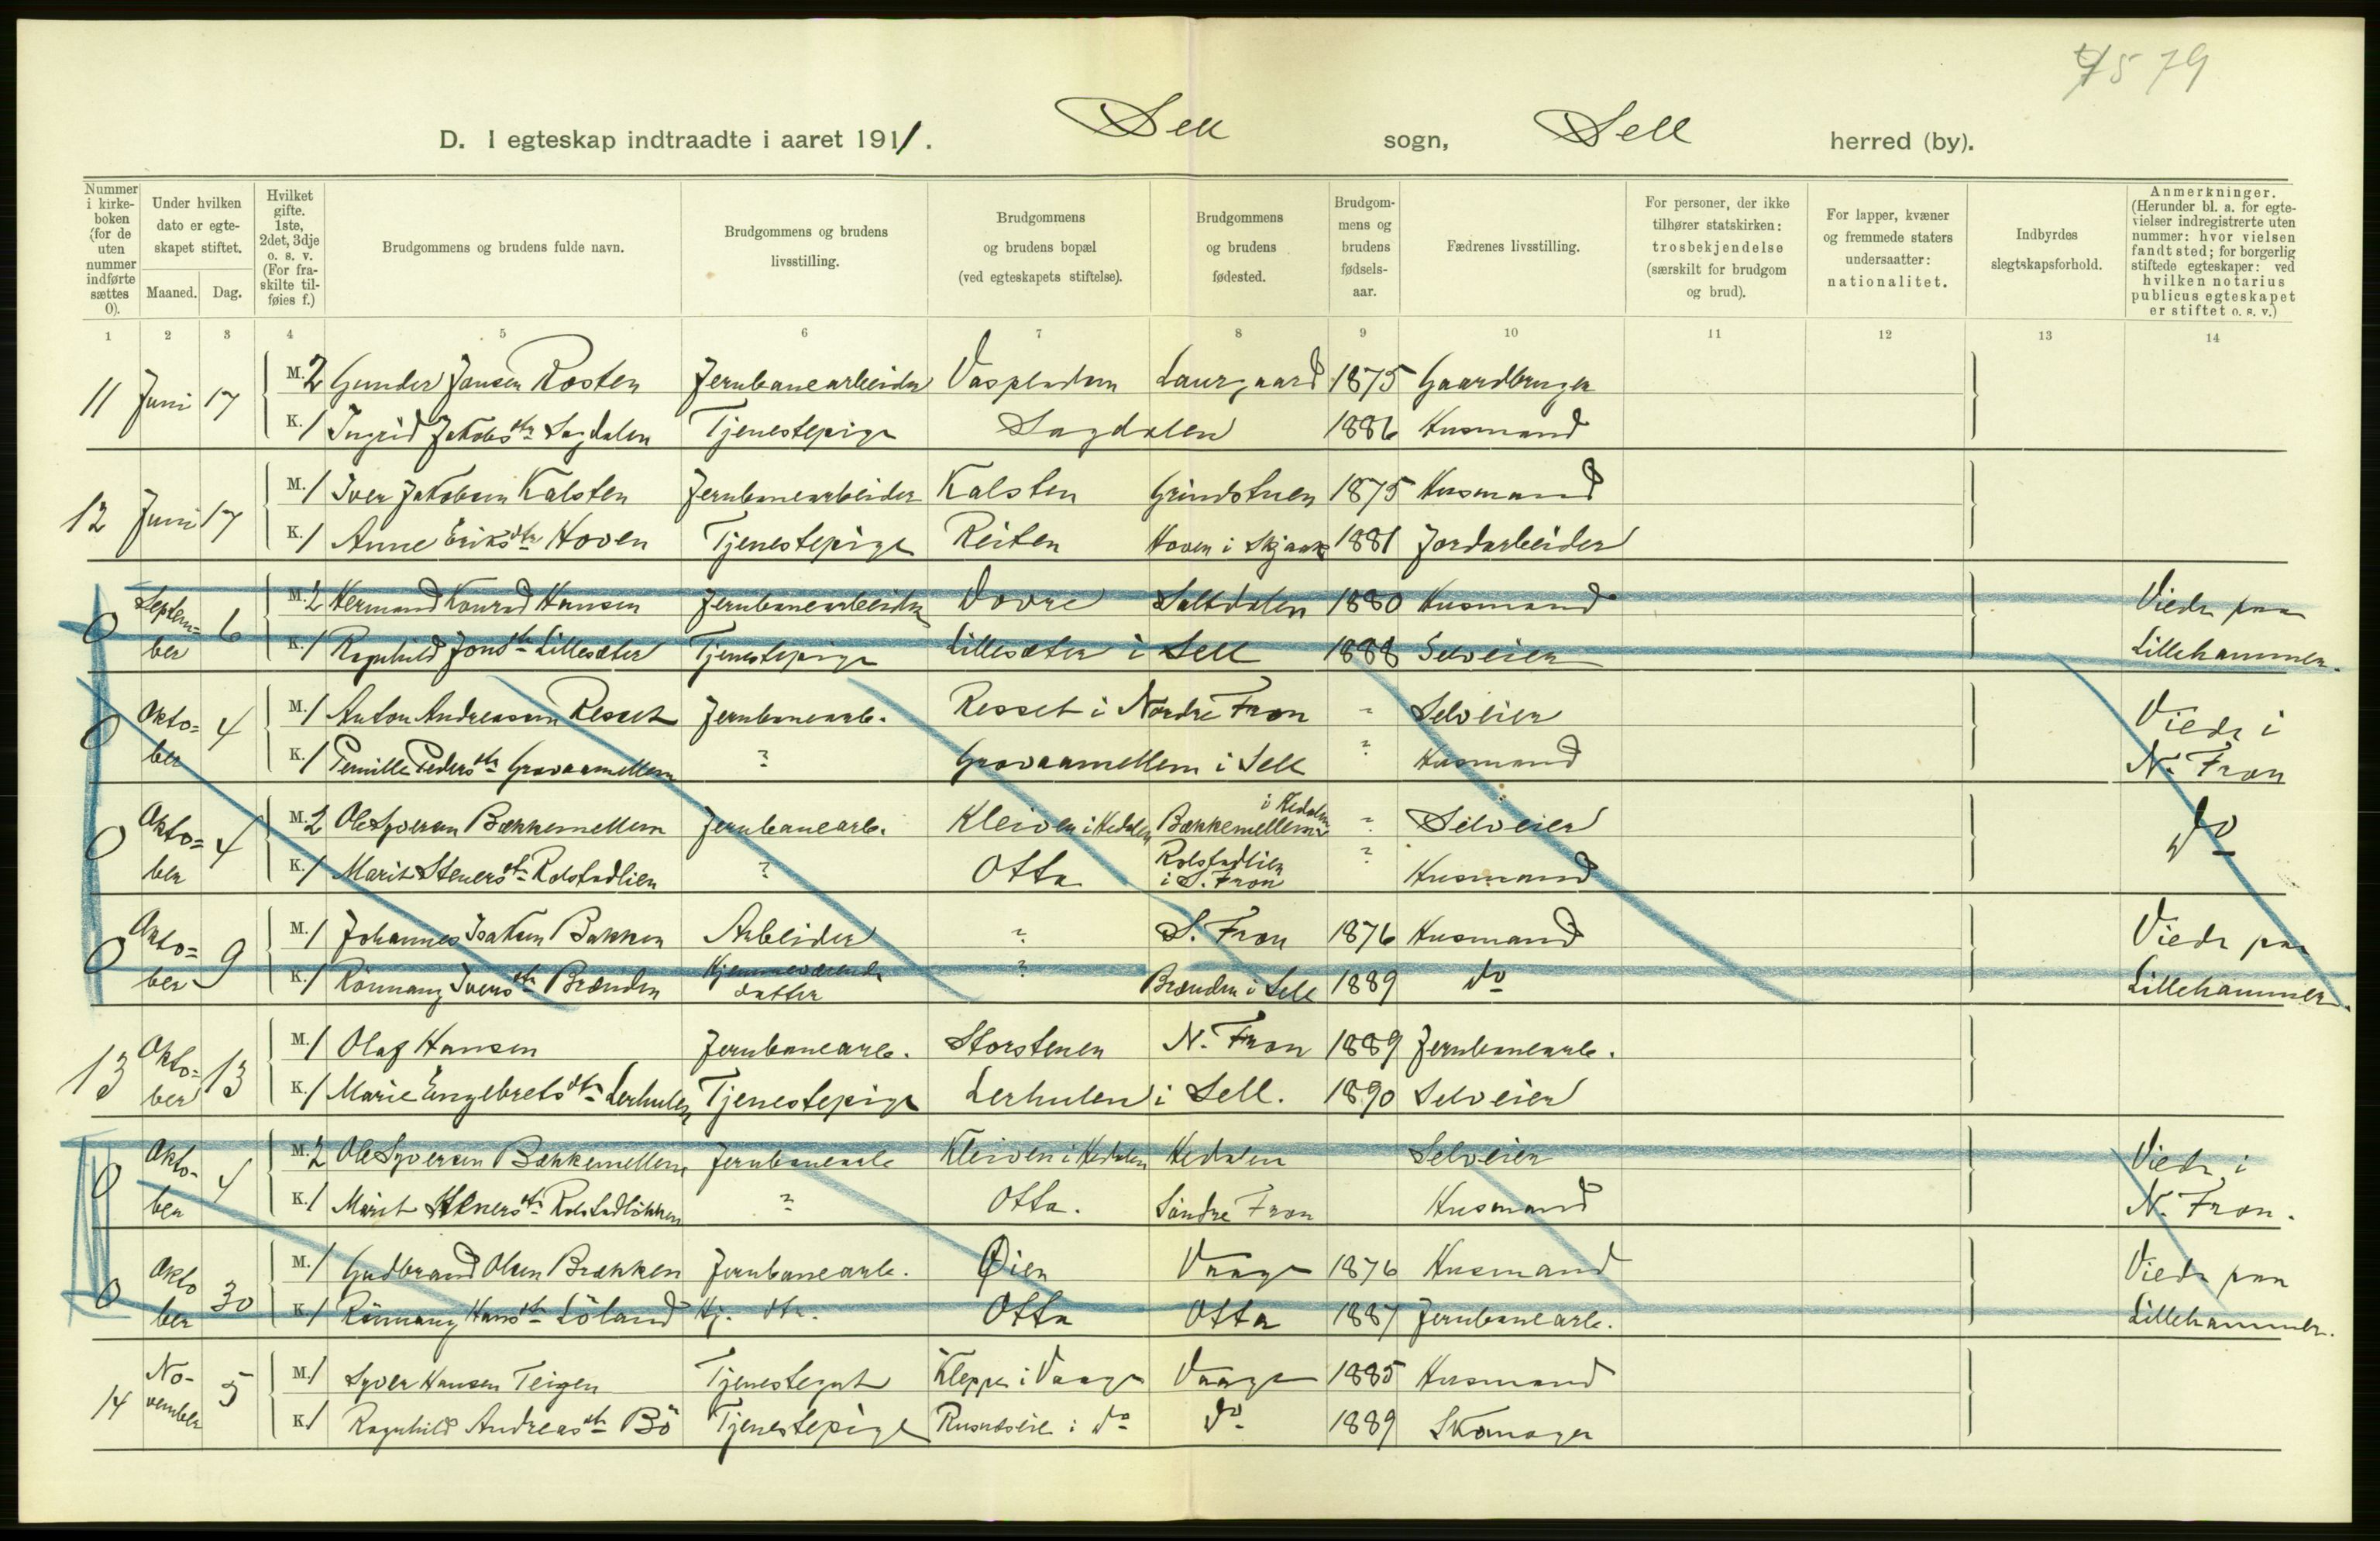 79
D. I egteskap indtraadte i aaret 1911. Sell sogn, Sell herred (by).
Nummer i kirkeboken (for de uten nummer indførte sættes 0).
Under hvilken dato er egteskapet stiftet.
Maaned. Dag.
Hvilket gifte. 1ste, 2det, 3dje o. s. v. (For fraskilte tilføies f.)
Brudgommens og brudens fulde navn.
Brudgommens og brudens livsstilling.
Brudgommens og brudens bopæl (ved egteskapets stiftelse).
Brudgommens og brudens fødested.
Brudgommens og brudens fødselsaar.
Fædrenes livsstilling.
For personer, der ikke tilhører statskirken: trosbekjendelse (særskilt for brudgom og brud).
For lapper, kvæner og fremmede staters undersaatter: nationalitet.
Indbyrdes slegtskapsforhold.
Anmerkninger. (Herunder bl. a. for egtevielser indregistrerte uten nummer: hvor vielsen fandt sted; for borgerlig stiftede egteskaper: ved hvilken notarius publicus egteskapet er stiftet o. s. v.)
1 2 3 4 5 6 7 8 9 10 11 12 13 14
11 Juni 17 M. 2 Gunder Jansen Rosten Jernbanearbeider Laurgaard 1875 Gaardbruger
K. 1 Ingrid Jakobsdtr Sagdalen Tjenestepige Sagdalen 1886 Husmand
12 Juni 17 M. 1 Iver Jakobsen Kalsten Jernbanearbeider Kalsten Grindstuen 1875 Husmand
K. 1 Anne Eriksdtr Hoven Tjenestepige Reiten Hoven i Skjaak 1881 Jordarbeider
0 September 6 M. 2 Hermand Konrad Hansen Jernbanearbeider Dovre Saltdalen 1880 Husmand Viede paa
K. 1 Ragnhild Jonsdtr Lillesæter Tjenestepige Lillesæter i Sell 1888 Selveier Lillehammer.
0 Oktober 4 M. 1 Anton Andreassen Resset Jernbanearb. Resset i Nordre Fron " Selveier Viede i
K. 1 Pernille Pedersdtr Grovaamellem ? Grovaamellem i Sell ? Husmand N. Fron
0 Oktober 4 M. 2 Ole Syversen Bækkemellem Jernbanearb. Kleiven i Hedalen Bækkemellem i Hedalen ? Selveier do
K. 1 Marit Stenersdtr Rolstadlien ? Otta Rolstadlien i S. Fron ? Husmand
0 Oktober 9 M. 1 Johannes Isaksen Bakken Arbeider ? S. Fron 1876 Husmand Viede paa
K. 1 Rönnaug Iversdtr Brænden Hjemmeværende datter ? Brænden i Sell 1889 do Lillehammer.
13 Oktober 13 M. 1 Olaf Hansen Jernbanearb. Storstenen N. Fron 1889 Jernbanearb.
K. 1 Marie Engebretsdtr Lerhulen Tjenestepige Lerhulen i Sell. 1890 Selveier
0 Oktober 4 M. 2 Ole Syversen Bækkemellem Jernbanearb Kleiven i Hedalen Hedalen Selveier Viede i
K. 1 Marit Stenersdtr Rolstadlökken ? Otta. Söndre Fron Husmand N. Fron.
0 Oktober 30 M. 1 Gudbrand Olsen Brækken Jernbanearb. Øien Vaage 1876 Husmand Viede paa
K. 1 Rönnaug Hansdtr Löland Hj. dtr. Otta Otta 1887 Jernbanearb. Lillehammer.
14 November 5 M. 1 Syver Hansen Teigen Tjenestegut Kleppe i Vaage Vaage 1885 Husmand
K. 1 Ragnhild Andreasdtr Bö Tjenestepige i do do 1889 Skomager